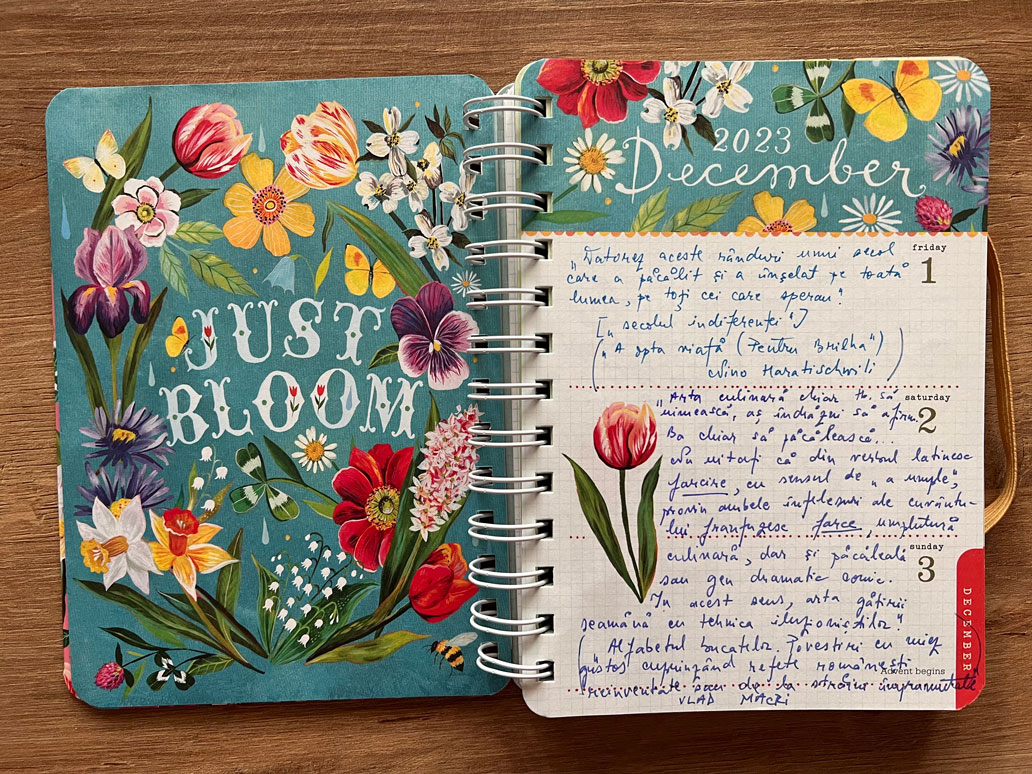 JUST
BLOOM
2023
December
friday
1
„Datorez aceste rânduri unui secol
care a păcălit și a înșelat pe toată
lumea, pe toți cei care sperau".
[„secolul indiferenței"]
(„A opta viață (Pentru Brilka")
Nino Haratischwili)
saturday
2
„Arta culinară chiar tb. să
uimească, aș îndrăzni să afirm.
Ba chiar să păcălească...
Nu uitați că din verbul latinesc
farcire, cu sensul de „a umple",
provin ambele înțelesuri ale cuvântu-
lui franțuzesc farce, umplutură
sunday
3
culinară, dar și păcăleală
sau gen dramatic comic.
În acest sens, arta gătirii
seamănă cu tehnica iluzioniștilor"
(Alfabetul bucatelor. Povestiri cu miez
gustos cuprinzând rețete românești
Advent begins
reinventate sau de la străini împrumutate
VLAD MACRI
DECEMBER